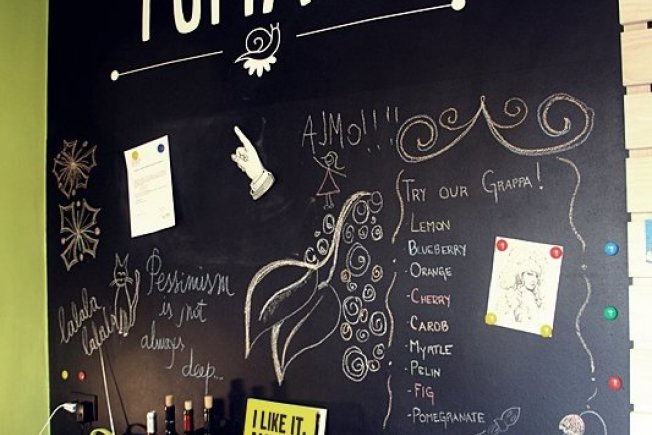 AJMO!!!!
TRY OUR GRAPPA!
LEMON
BLUEBERRY
·ORANGE
·CHERRY
·CAROB
·MYRTLE
·PELIN
·FIG
·POMEGRANATE
Pessimism
is not
always
deep...
lalala
lalala
I LIKE IT.